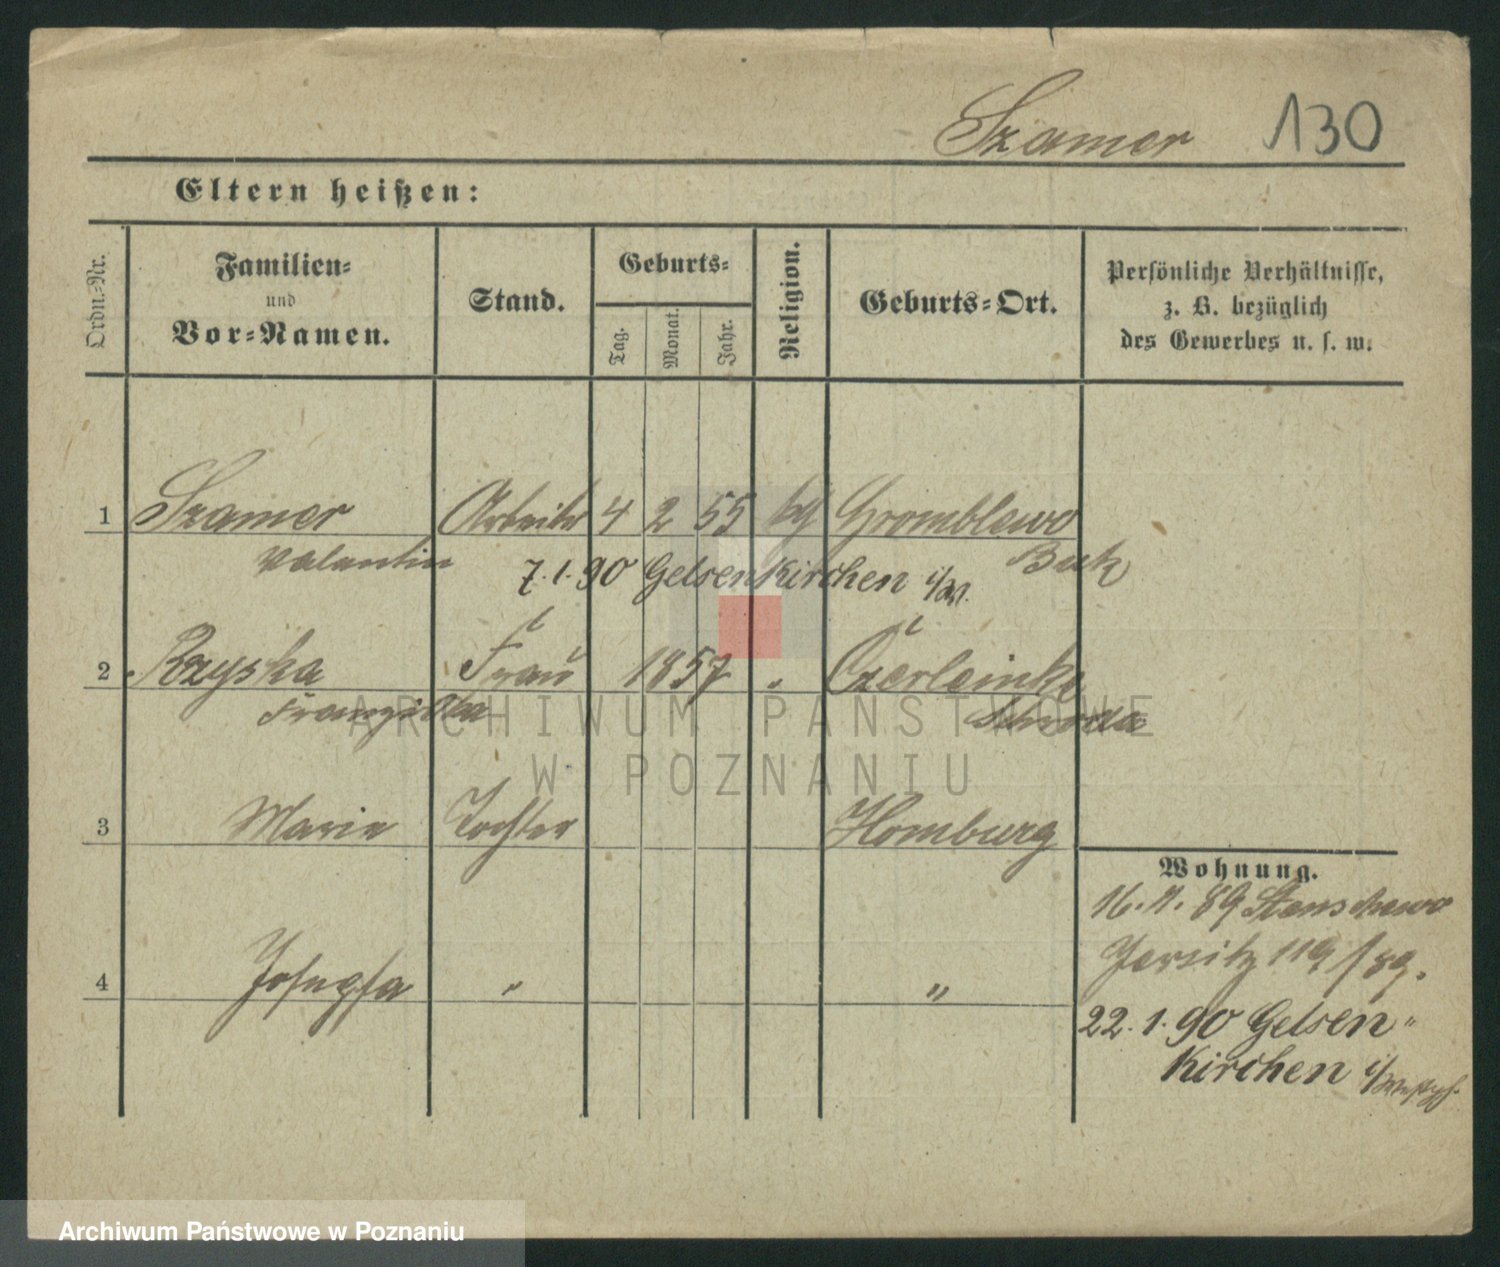 Szamer 130
Eltern heißen:
Ordn.-Nr.
Familien-
und
Vor-Namen.
Stand.
Geburts-
Tag.
Monat.
Jahr.
Religion.
Geburts-Ort.
Persönliche Verhältnisse,
z. B. bezüglich
des Gewerbes u. s. w.
1 Szamer Arbeiter 4 2 55 kg Gromblewo
Valentin Buk
7.1.90 Gelsenkirchen i/W.
2 Rzyska Frau 1857 " Czerleinke
Franziska Schroda
ARCHIWUM PAŃSTWOWE
W POZNANIU
3 Marie Tochter Homburg
Wohnung.
16.11.89 Stenschewo
4 Josepha " "
Jersitz 119/89.
22.1.90 Gelsen-
kirchen i/Westph.
Archiwum Państwowe w Poznaniu